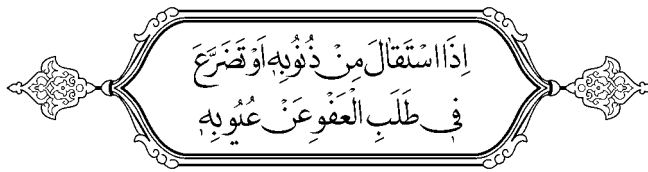 اِذَا اسْتَقَالَ مِنْ ذُنُوبِهِ اَوْ تَضَرَّعَ
فِي طَلَبِ الْعَفْوِ عَنْ عُيُوبِهِ